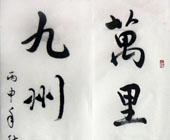 萬里
九州
丙申年